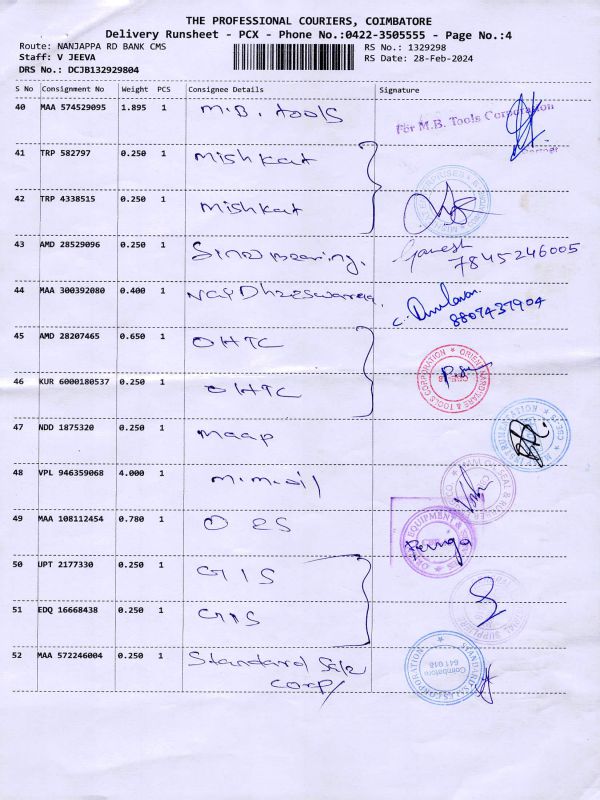 THE PROFESSIONAL COURIERS, COIMBATORE
Delivery Runsheet - PCX - Phone No.:0422-3505555 - Page No.:4
Route: NANJAPPA RD BANK CMS RS No.: 1329298
Staff: V JEEVA RS Date: 28-Feb-2024
DRS No.: DCJB132929804
S No Consignment No Weight PCS Consignee Details Signature
40 MAA 574529095 1.895 1 M.B. tools
For M.B. Tools Corporation
Partner
41 TRP 582797 0.250 1 Mishkat
42 TRP 4338515 0.250 1 Mishkat
43 AMD 28529096 0.250 1 Sino Bearing. Ganesh
7845246005
44 MAA 300392080 0.400 1
8807437904
45 AMD 28207465 0.650 1 OHTC
ORIENT HARDWARE & TOOLS CORPORATION
46 KUR 6000180537 0.250 1 OHTC
47 NDD 1875320 0.250 1 maap
48 VPL 946359068 4.000 1
49 MAA 108112454 0.780 1 OES
EQUIPMENT &
50 UPT 2177330 0.250 1 GIS
51 EDQ 16668438 0.250 1 GIS
52 MAA 572246004 0.250 1 Standard Sale
corp/
STANDARD SALES CORPORATION
Coimbatore
641 018